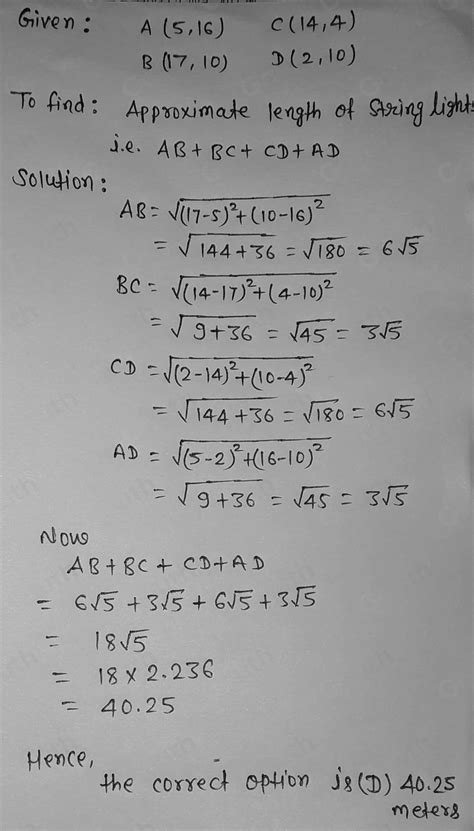 Given : A (5,16) C (14,4)
B (17,10) D (2,10)
To find : Approximate length of string lights
i.e. AB + BC + CD + AD
Solution :
AB = √(17-5)²+(10-16)²
= √144+36 = √180 = 6√5
BC = √(14-17)²+(4-10)²
= √9+36 = √45 = 3√5
CD = √(2-14)²+(10-4)²
= √144+36 = √180 = 6√5
AD = √(5-2)²+(16-10)²
= √9+36 = √45 = 3√5
Now
AB + BC + CD + AD
= 6√5 + 3√5 + 6√5 + 3√5
= 18√5
= 18 × 2.236
= 40.25
Hence,
the correct option is (D) 40.25
meters